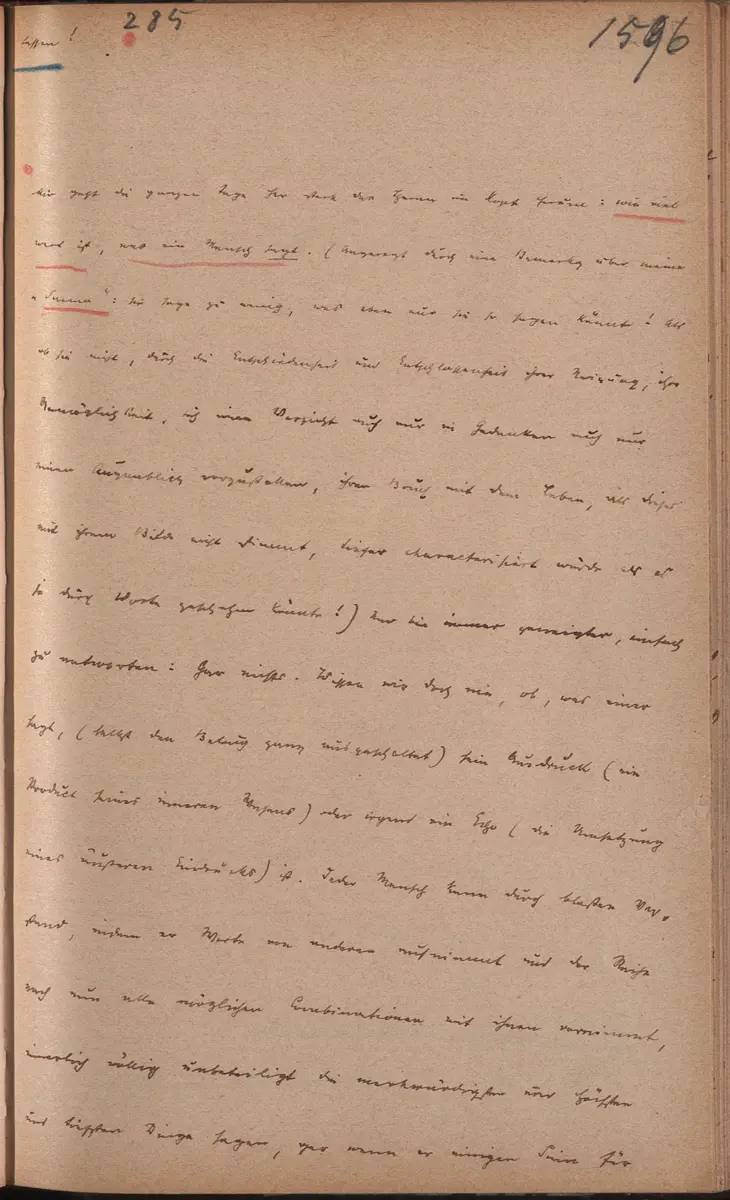 285
1596
lassen!
Mir geht die ganzen Tage her stark das Thema im Kopf herum: wie viel
wert ist, was ein Mensch sagt. (Angeregt durch eine Bemerkg über meine
": sie sage zu wenig, was eben nur sie so sagen könnte! Als
ob sie nicht, durch die Entschiedenheit und Entschlossenheit ihrer Neigung, ihre
Unmöglichkeit, sich einen Verzicht auch nur in Gedanken auch nur
einen Augenblick vorzustellen, ihren Bruch mit dem Leben, als dieses
mit ihrem Bilde nicht stimmt, tiefer charakterisiert würde als es
je durch Worte geschehen könnte!) Nun bin immer geneigter, einfach
zu antworten: Gar nichts. Wissen wir doch nie, ob, was einer
sagt, (selbst den Betrug ganz ausgeschaltet) sein Ausdruck (ein
Product seines inneren Wesens) oder irgend ein Echo (die Umsetzung
eines äußeren Eindrucks) ist. Jeder Mensch kann durch bloßen Ver-
stand, indem er Worte von anderen aufnimmt und der Reihe
nach nun alle möglichen Combinationen mit ihnen vornimmt,
innerlich völlig unbeteiligt die merkwürdigsten und höchsten
und tiefsten Dinge sagen, gar wenn er einigen Sinn für